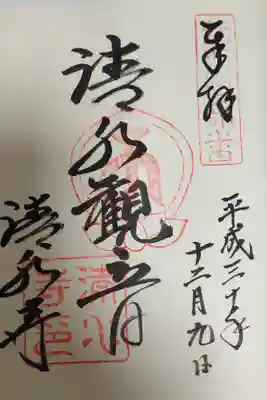 奉拝
平成三十年
十二月九日
清水観音
清水寺